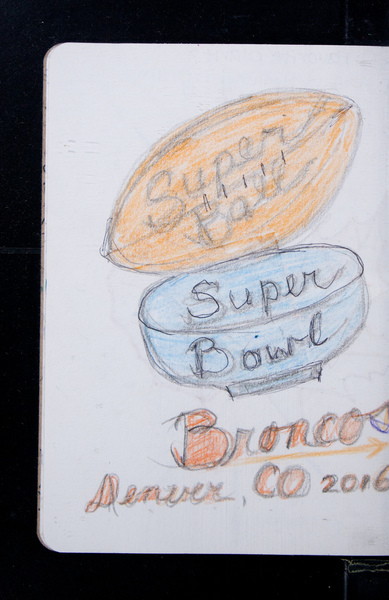 Super
Ball
Super
Bowl
Broncos
Denver, CO 2016